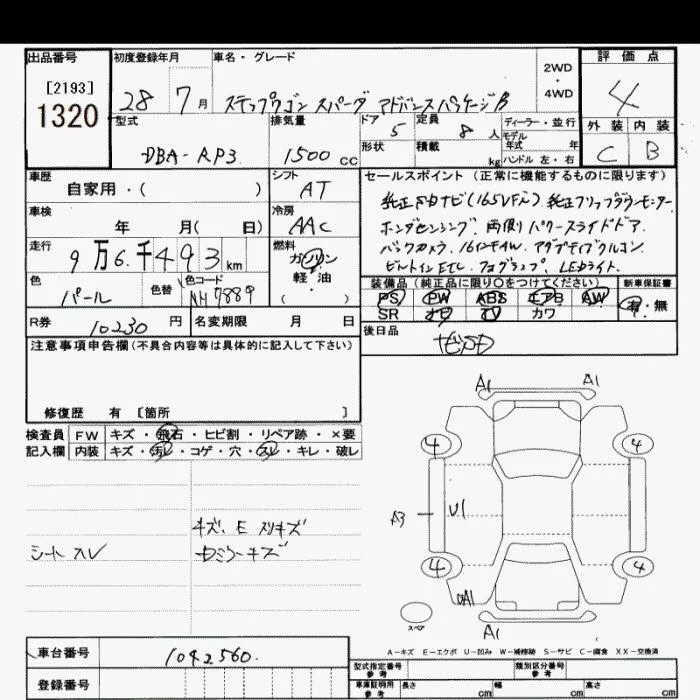 出品番号 初度登録年月 車名・グレード 2WD・4WD 評価点
[2193] 1320
28 7月 ステップワゴン スパーダ アドバンスパッケージβ 4
型式 排気量 ドア 定員 ディーラー・並行 外装 内装
DBA-RP3 1500 cc 5 8 人 モデル年式 年 C B
形状 積載 kg ハンドル 左・右
車歴 シフト セールスポイント(正常に機能するものに限ります)
自家用・( ) AT
純正ナビ(165VFハ) 純正フリップダウンモニター
車検 冷房
年 月( 日) AAC
ホンダセンシング、両側パワースライドドア
走行 燃料
9万6千493 km ガソリン
軽・油
( )
バックカメラ、16インチAW、アダプティブクルコン
ビルトインETC、フォグランプ、LEDライト
色 色替 色コード
パール NH7889
装備品(純正品に限り○をつけてください) 新車保証書
PS PW ABS エアB AW 有・無
SR ナビ TV カワ
R券 10230 円 名変期限 月 日
後日品
注意事項申告欄(不具合内容等は具体的に記入して下さい)
修復歴 有 [箇所 ]
検査員 FW キズ・飛石・ヒビ割・リペア跡・×要
記入欄 内装 キズ・汚レ・コゲ・穴・スレ・キレ・破レ
キズ、E スリキズ
シート スレ ミラーキズ
A1 A1
4 4
A3 U1
4 4
A1
A1
スペア
A-キズ E-エクボ U-凹み W-補修跡 S-サビ C-腐食 XX-交換済
車台番号 1042560.
登録番号
型式指定番号 参考 類別区分番号 参考
車庫証明用 参考 長さ cm 幅 cm 高さ cm